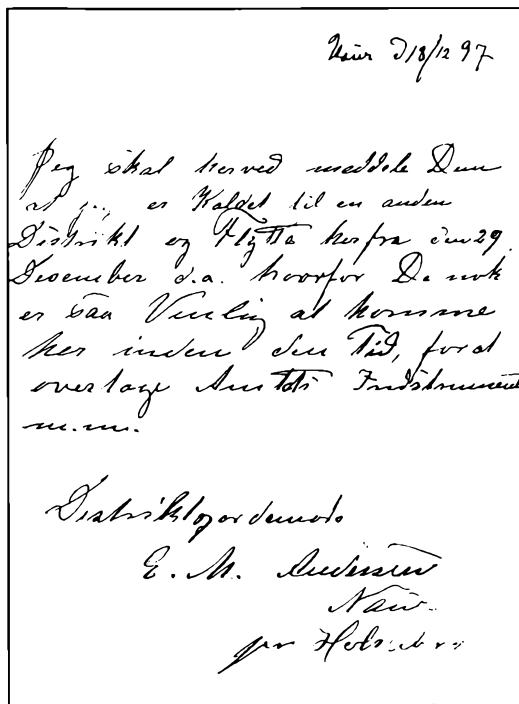 Naur d 18/12 97
Jeg skal herved meddele Dem
at jeg er Kaldet til en anden
Distrikt og Flytta herfra den 29
Desember d.a. hvorfor De nok
er saa Venlig at komme
her inden den Tid, for at
overtage Amtets Indstrument
m.m.
Distriktsjordemoder
E. M. Andersen
Naur
pr Holstebro